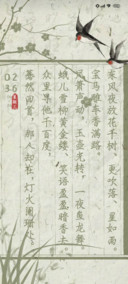 东风夜放花千树。更吹落、星如雨。
宝马雕车香满路。
凤箫声动，玉壶光转，一夜鱼龙舞。
蛾儿雪柳黄金缕。笑语盈盈暗香去。
众里寻他千百度。
蓦然回首，那人却在，灯火阑珊处。